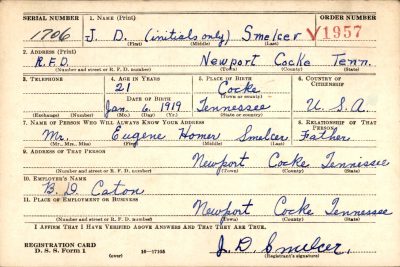 SERIAL NUMBER 1. NAME (Print) ORDER NUMBER
1706 J. D. (initials only) Smelcer V1957
(First) (Middle) (Last)
2. ADDRESS (Print)
R.F.D. Newport Cocke Tenn.
(Number and street or R. F. D. number) (Town) (County) (State)
3. TELEPHONE 4. AGE IN YEARS 5. PLACE OF BIRTH 6. COUNTRY OF CITIZENSHIP
21 Cocke
DATE OF BIRTH (Town or county)
Jan. 6, 1919 Tennessee U. S. A.
(Exchange) (Number) (Mo.) (Day) (Yr.) (State or country)
7. NAME OF PERSON WHO WILL ALWAYS KNOW YOUR ADDRESS 8. RELATIONSHIP OF THAT PERSON
Mr. Eugene Homer Smelcer Father
(Mr., Mrs., Miss) (First) (Middle) (Last)
9. ADDRESS OF THAT PERSON
Newport Cocke Tennissee
(Number and street or R. F. D. number) (Town) (County) (State)
10. EMPLOYER'S NAME
B. D. Caton
11. PLACE OF EMPLOYMENT OR BUSINESS
Newport Cocke Tennessee
(Number and street or R. F. D. number) (Town) (County) (State)
I AFFIRM THAT I HAVE VERIFIED ABOVE ANSWERS AND THAT THEY ARE TRUE.
REGISTRATION CARD
D. S. S. Form 1 (over) 16—17105 J. D. Smelcer.
(Registrant's signature)